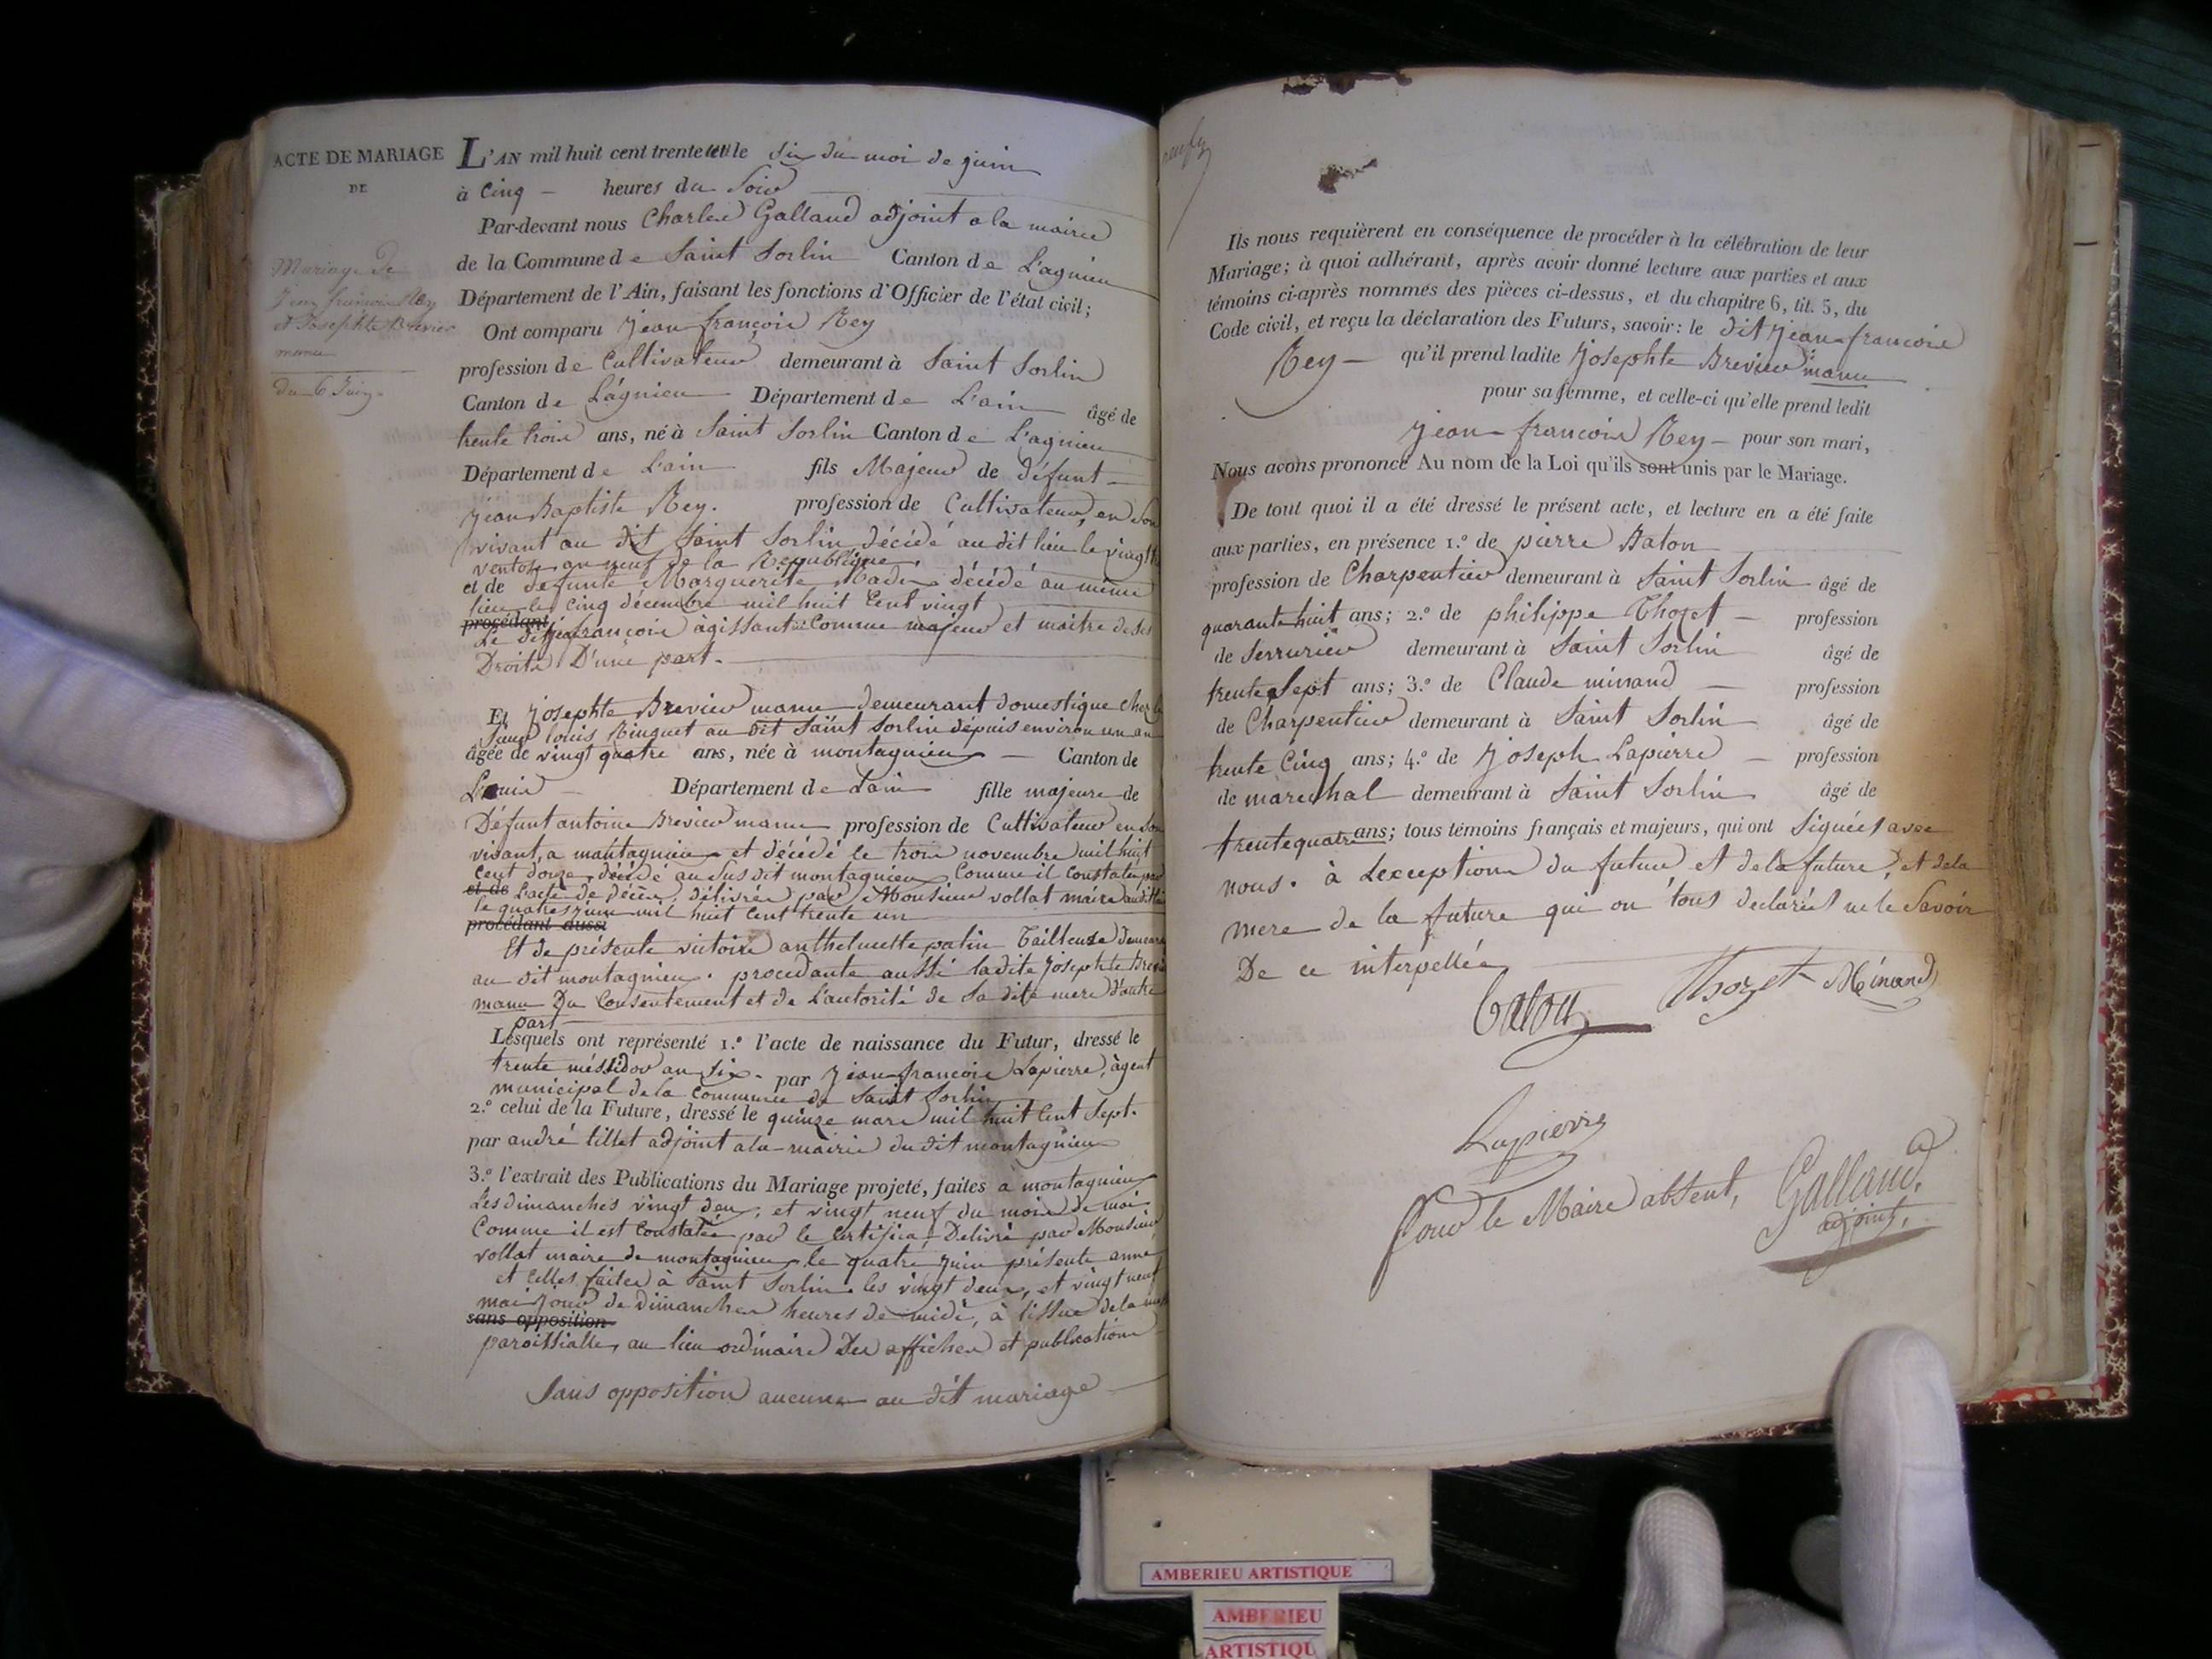 ACTE DE MARIAGE
DE
Mariage de
Jean françois Rey
et Josephte Brevier
manu
du 6 Juin.
L'AN mil huit cent trente et un le Six du moi de juin
à Cinq heures du Soir
Par-devant nous Charles Galland adjoint a la mairie
de la Commune de Saint Sorlin Canton de L'agnieu
Département de l'Ain, faisant les fonctions d'Officier de l'état civil;
Ont comparu Jean françois Rey
profession de Cultivateur demeurant à Saint Sorlin
Canton de Lagnieu Département de L'ain âgé de
trente trois ans, né à Saint Sorlin Canton de L'agnieu
Département de L'ain fils Majeur de défunt
Jean Baptiste Rey. profession de Cultivateur, en Son
vivant au dit Saint Sorlin décédé au dit lieu le vingt
ventose an neuf de la Republique.
et de defunte Marguerite décédé au même
lieu le cinq décembre mil huit Cent vingt
procédant
Le dit Jean françois àgissant Comme majeur et maitre de Ses
Droits D'une part.
Et Josephte Brevier manu demeurant domestique chez le
Sieur louis Ringuet au dit Saint Sorlin dépuis environ un an
âgée de vingt quatre ans, née à montagnieu Canton de
Département de Lain fille majeure de
Défunt antoine Brevier manu profession de Cultivateur en Son
vivant, a montagnieu et décédé le trois novembre mil huit
Cent douze décédé au Sus dit montagnieu Comme il Constate par
et de Lacte de décès, délivrée par Monsieur vollat maire audit lieu
le quatre juin mil huit Cent trente un
procédant aussi
Et de présente victoire anthelmette patin Tailleuse demeurant
au dit montagnieu. procedante aussi ladite Josephte Brevier
manu Du Consentement et de L'autorité de Sa dite mere D'autre
part
Lesquels ont représenté 1.º l'acte de naissance du Futur, dressé le
trente méssidor an Six. par Jean françois Lapierre, àgent
municipal de la Commune de Saint Sorlin
2.º celui de la Future, dressé le quinze mars mil huit Cent Sept.
par andré tillet adjoint a la mairie du dit montagnieu
3.º l'extrait des Publications du Mariage projeté, faites à montagnieu
Les dimanches vingt deux, et vingt neuf du mois de mai
Comme il est Constatée par le Certificat Delivré par Monsieur
vollat maire de montagnieu le quatre Juin présente anné
et Celles faites à Saint Sorlin les vingt deux, et vingt neuf
mai Jour de dimanches heures de midi, à lissue de la messe
sans opposition
paroissialle, au lieu ordinaire Des affiches et publications
Sans opposition aucune au dit mariage
Ils nous requièrent en conséquence de procéder à la célébration de leur
Mariage; à quoi adhérant, après avoir donné lecture aux parties et aux
témoins ci-après nommés des pièces ci-dessus, et du chapitre 6, tit. 5, du
Code civil, et reçu la déclaration des Futurs, savoir: le dit Jean francois
Rey qu'il prend ladite Josephte Brevier manu
pour sa femme, et celle-ci qu'elle prend ledit
Jean francois Rey pour son mari,
Nous avons prononcé Au nom de la Loi qu'ils sont unis par le Mariage.
De tout quoi il a été dressé le présent acte, et lecture en a été faite
aux parties, en présence 1.º de pierre
profession de Charpentier demeurant à Saint Sorlin âgé de
quarante huit ans; 2.º de philippe Thozet profession
de Serrurier demeurant à Saint Sorlin âgé de
trente Sept ans; 3.º de Claude minand profession
de Charpentier demeurant à Saint Sorlin âgé de
trente Cinq ans; 4.º de Joseph Lapierre profession
de marechal demeurant à Saint Sorlin âgé de
trente quatre ans; tous témoins français et majeurs, qui ont Signéés avec
nous. à Lexception du futur, et de la future, et de la
mere de la future qui on tous declarés ne le Savoir
De ce interpellée
Thozet Minand
Lapierre
Pour le Maire absent, Galland,
adjoint,
AMBERIEU ARTISTIQUE
AMBERIEU
ARTISTIQU